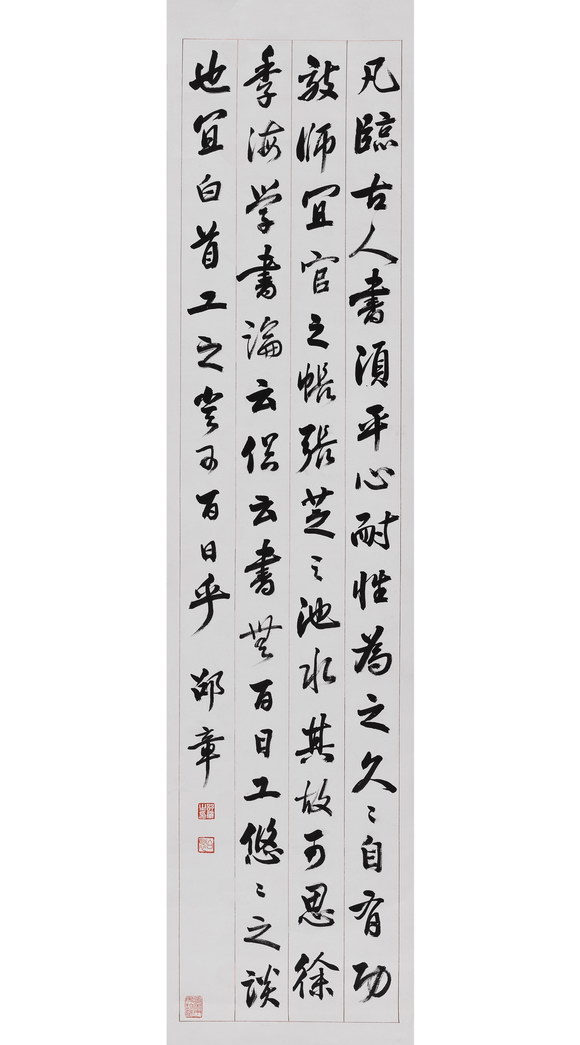 凡臨古人書須平心耐性為之久〻自有功
效師冝官之帳張芝之池水其故可思徐
季海学書論云俗云書無百日工悠〻之談
也冝白首工之豈可百日乎 邵章